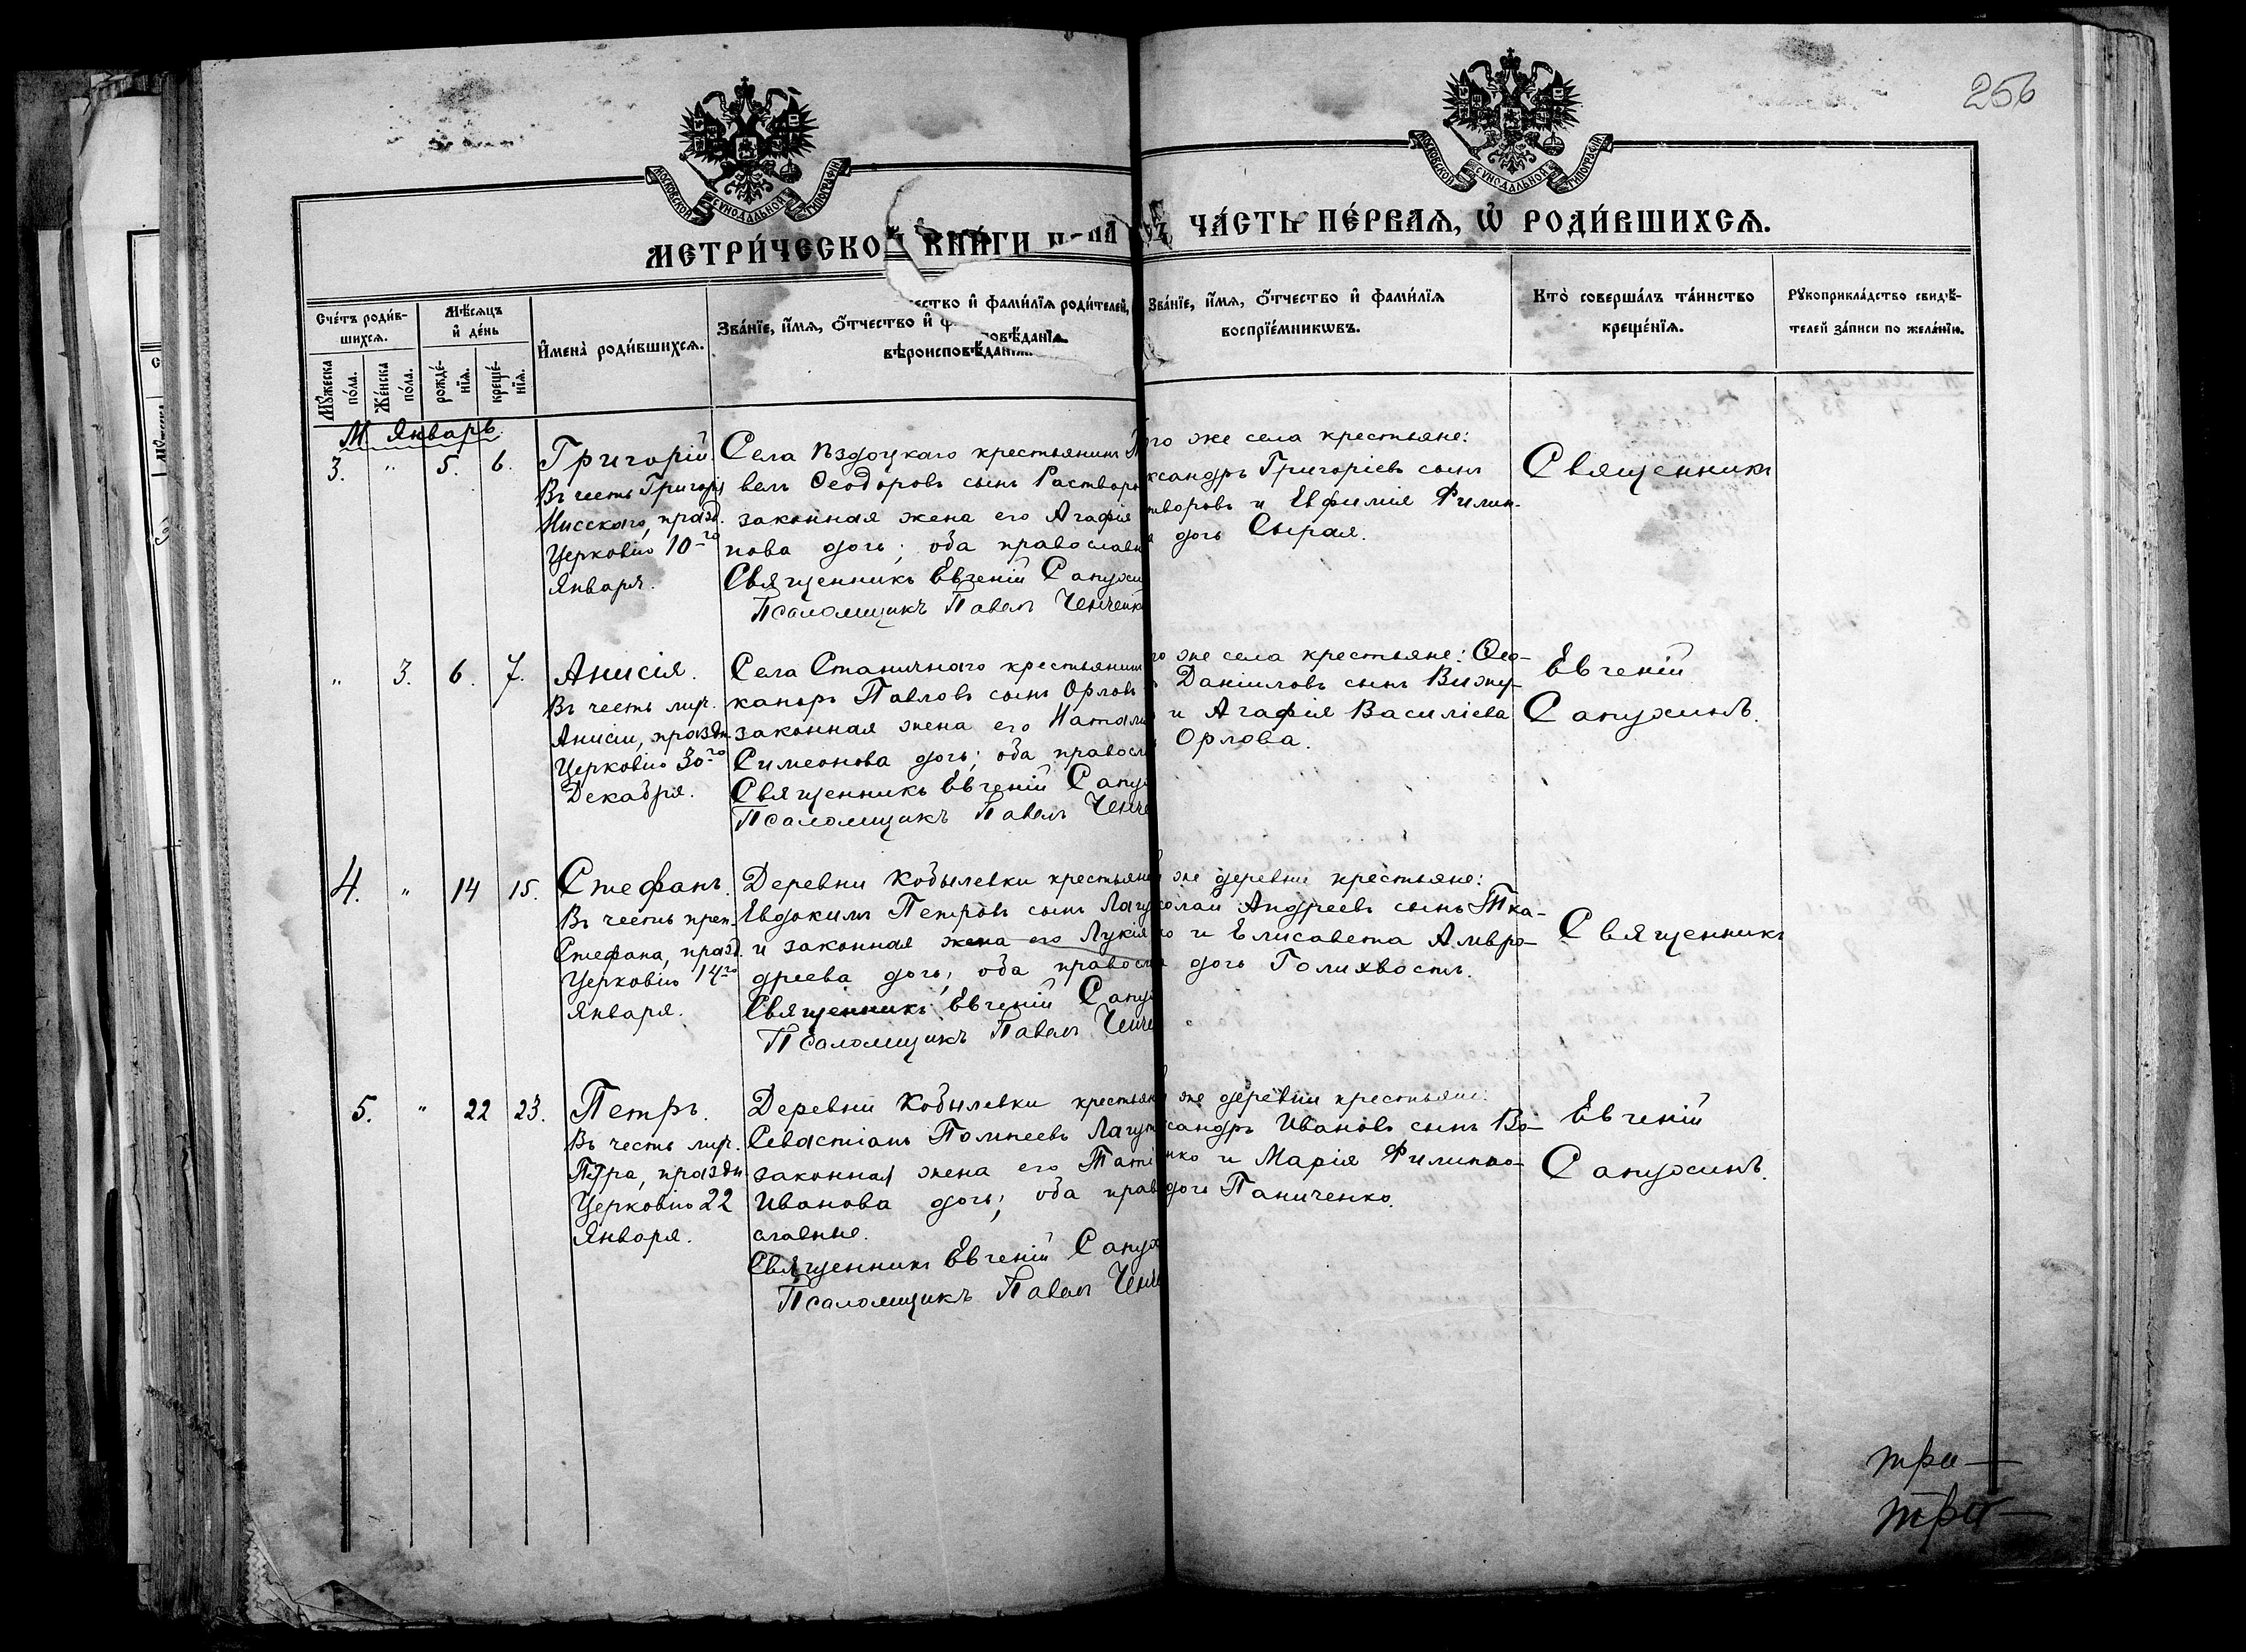 256
МОСКОВСКОЙ СѴНОДАЛЬНОЙ ТИПОГРАФІИ
МОСКОВСКОЙ СѴНОДАЛЬНОЙ ТИПОГРАФІИ
МЕТРИ́ЧЕСКО КНИ́ГИ
ЧА́СТЬ ПЕ́РВАѦ, Ѡ РОДИ́ВШИХСѦ.
Сче́тъ роди́в-
шихсѧ.
Мꙋ́жеска
по́ла.
Же́нска
по́ла.
Мѣ́сѧцъ
и҆ де́нь
рожде́-
нїѧ.
креще́-
нїѧ.
И҆мена̀ роди́вшихсѧ.
Зва́нїе, и҆́мѧ, ѻ҆́тчество и҆
ество и҆ фами́лїѧ роди́телей,
овѣ́данїѧ
вѣроисповѣ́данїѧ.
Зва́нїе, и҆́мѧ, ѻ҆́тчество и҆ фами́лїѧ
воспрїе́мникѡвъ.
Кто̀ соверша́лъ та́инство
креще́нїѧ.
Рꙋкоприкла́дство свидѣ́-
телей за́писи по жела́нїю.
М. Январь.
3. " 5. 6.
Григорій.
Въ честь Григор
Нисскаго, празд.
Церковію 10-го
Января.
Села крестьянинъ
велъ Ѳеодоровъ сынъ Растворо
законная жена его Агафія
пова дочь; оба православн
Священникъ Евгеній Сапухи
Псаломщикъ Павелъ Ченченк
го же села крестьяне:
ксандръ Григоріевъ сынъ
творовъ и Евфимія Филип-
дочь Сырая.
Священникъ
" 3. 6. 7.
Анисія.
Въ честь муч.
Анисіи, праздн.
Церковію 30-го
Декабря.
Села Станичнаго крестьянин
каноръ Павловъ сынъ Орловъ
законная жена его Натал
Симеонова дочь; оба правосл
Священникъ Евгеній Сапу
Псаломщикъ Павелъ Ченче
го же села крестьяне: Ѳео-
Даніиловъ сынъ
и Агафія Василіева
Орлова.
Евгеній
Сапухинъ.
4. " 14 15.
Стефанъ.
Въ честь преп.
Стефана, празд.
Церковію 14-го
Января.
Деревни Кобылевки крестьян
Евдокимъ Петровъ сынъ Лагу
и законная жена его Лукія
дреева дочь; оба правосл
Священникъ Евгеній Сапу
Псаломщикъ Павелъ Ченче
же деревни крестьяне:
колай Андреевъ сынъ Тка-
и Елисавета Амвро-
дочь Голихвостъ.
Священникъ
5. " 22 23.
Петръ.
Въ честь муч.
Петра, праздн.
Церковію 22
Января.
Деревни Кобылевки крестьян
Севастіанъ Помпеевъ Лагут
законная жена его Таті
Иванова дочь; оба прав
славные.
Священникъ Евгеній Сапух
Псаломщикъ Павелъ Ченч
же деревни крестьяне:
сандръ Ивановъ сынъ Во-
нко и Марія Филиппо-
дочь Паниченко.
Евгеній
Сапухинъ.
три—
три—